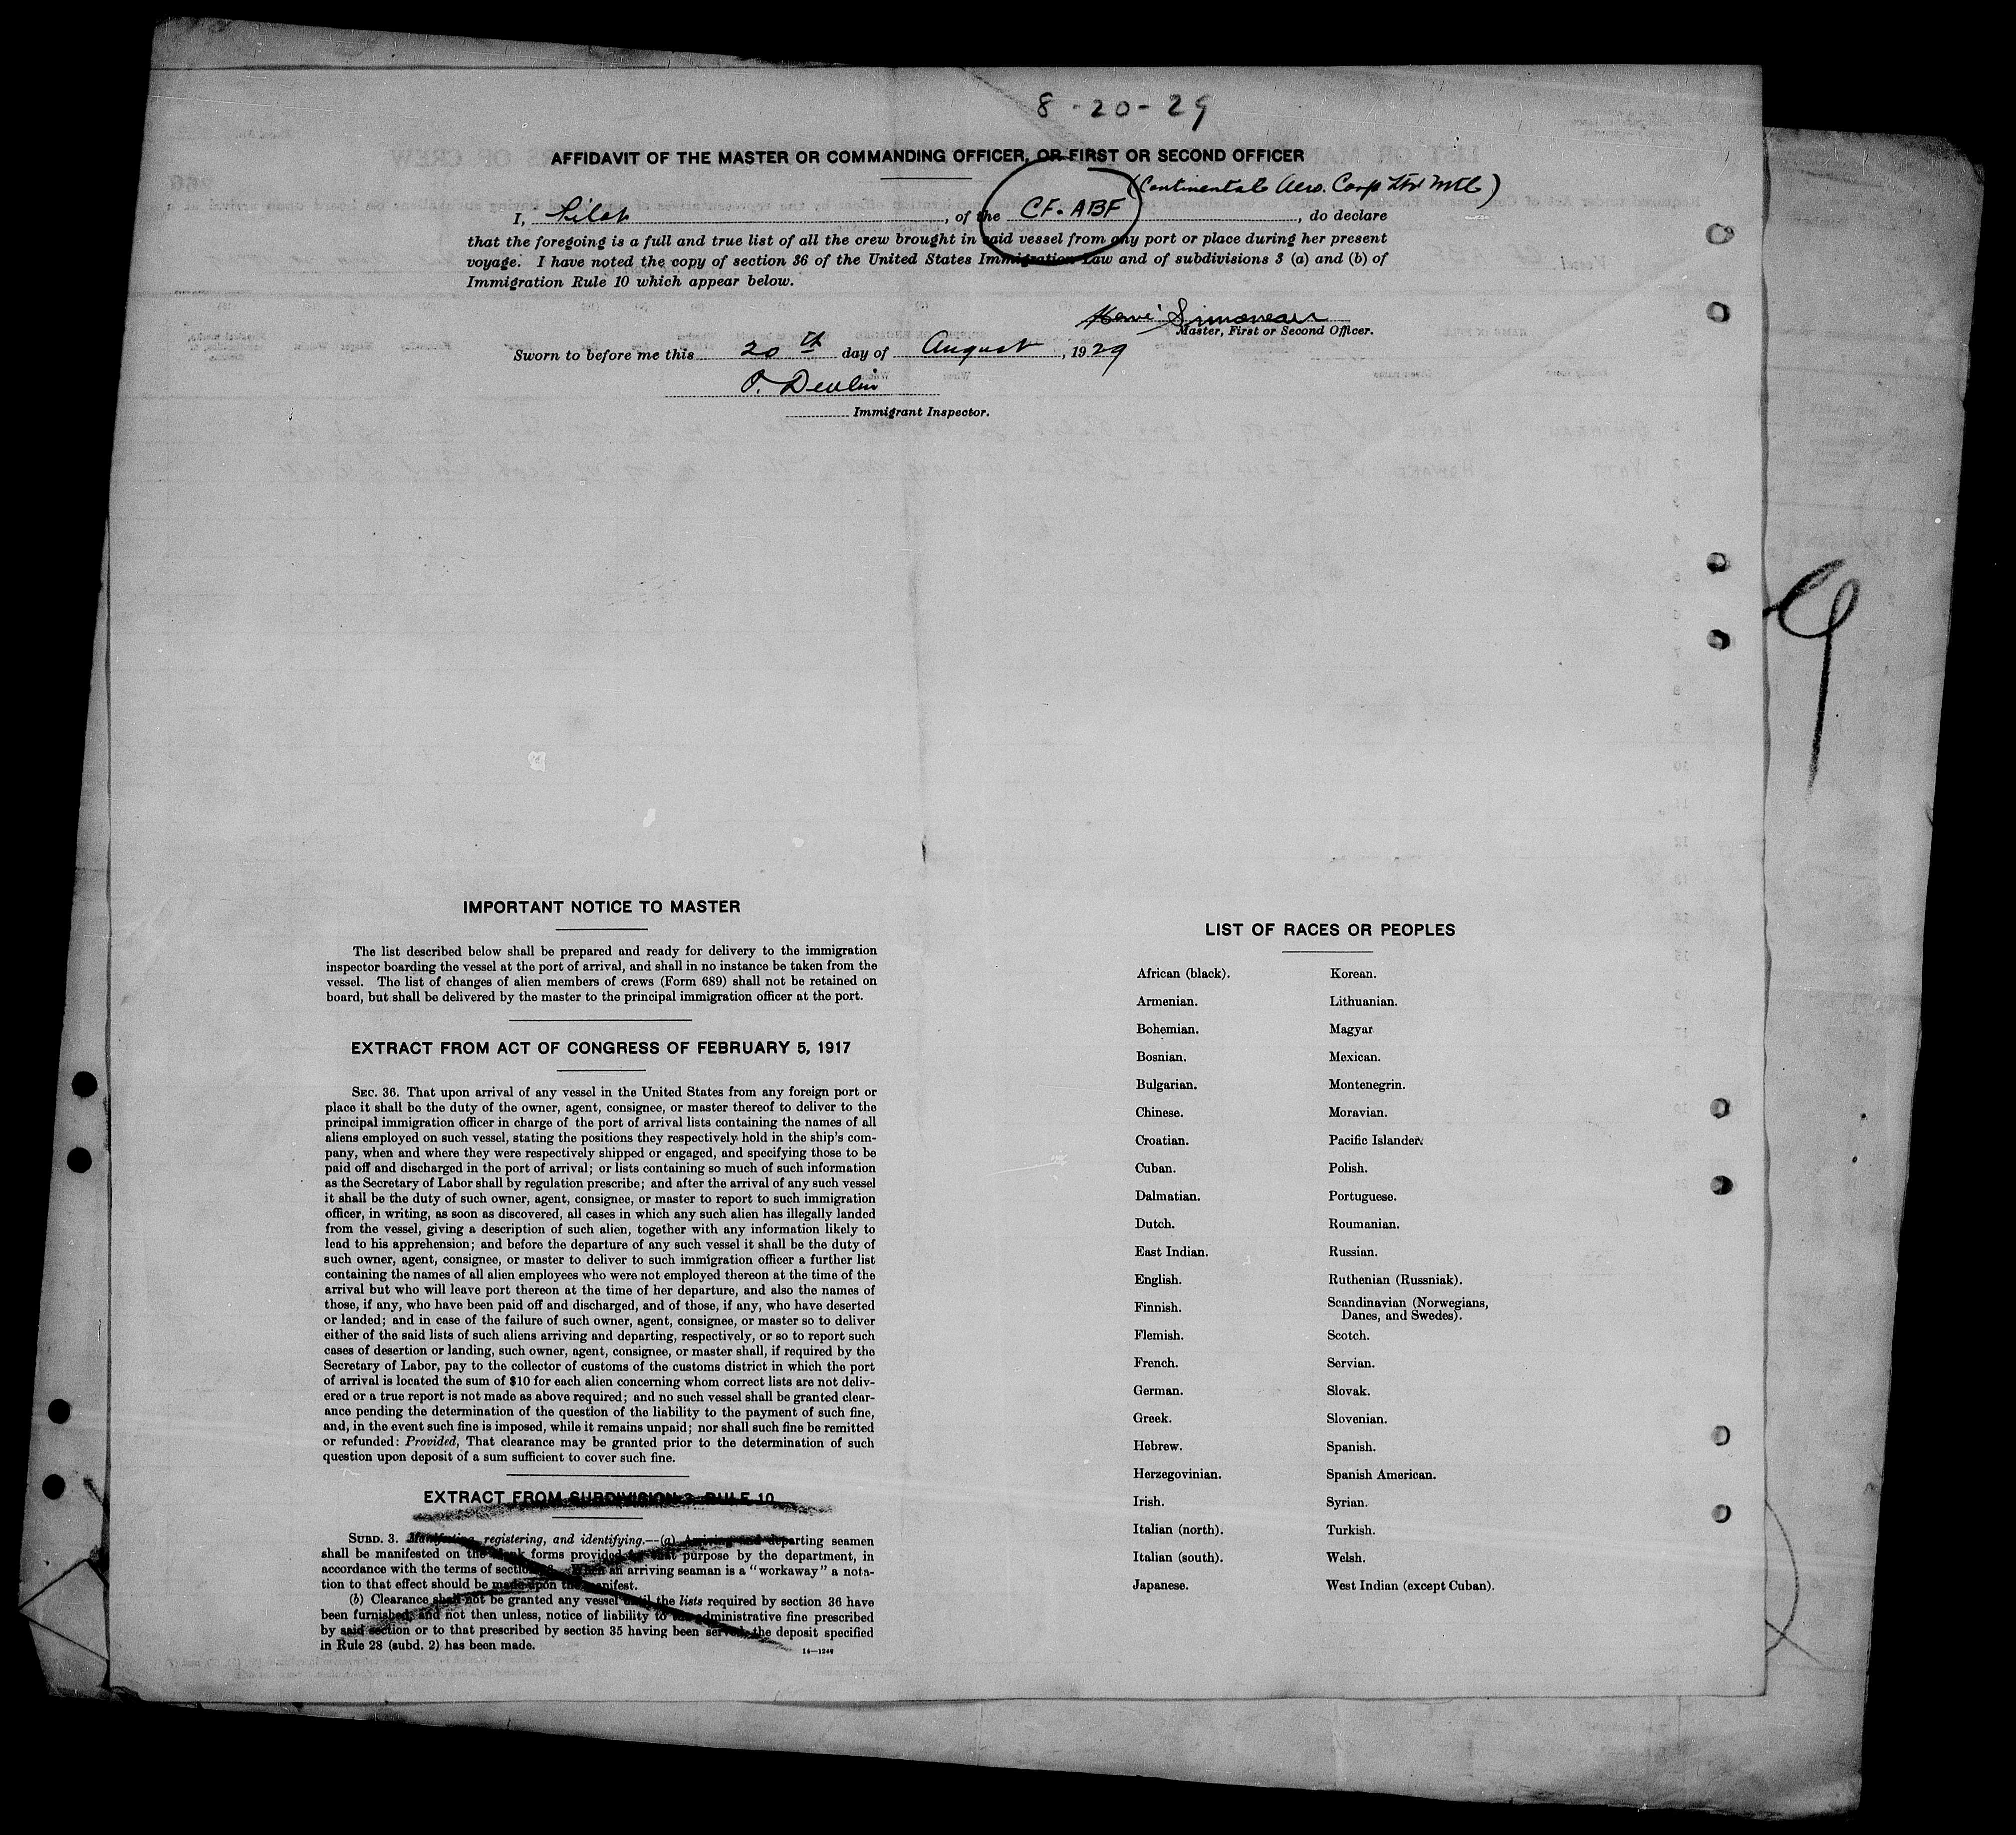 8-20-29
AFFIDAVIT OF THE MASTER OR COMMANDING OFFICER, OR FIRST OR SECOND OFFICER
(Continental Aero. Corp Ltd Mtl)
I, Pilot, of the CF-ABF, do declare
that the foregoing is a full and true list of all the crew brought in said vessel from any port or place during her present
voyage. I have noted the copy of section 36 of the United States Immigration Law and of subdivisions 3 (a) and (b) of
Immigration Rule 10 which appear below.
Hervé Simoneau
Master, First or Second Officer.
Sworn to before me this 20th day of August, 1929
Devlin
Immigrant Inspector.
9
IMPORTANT NOTICE TO MASTER
The list described below shall be prepared and ready for delivery to the immigration
inspector boarding the vessel at the port of arrival, and shall in no instance be taken from the
vessel. The list of changes of alien members of crews (Form 689) shall not be retained on
board, but shall be delivered by the master to the principal immigration officer at the port.
EXTRACT FROM ACT OF CONGRESS OF FEBRUARY 5, 1917
SEC. 36. That upon arrival of any vessel in the United States from any foreign port or
place it shall be the duty of the owner, agent, consignee, or master thereof to deliver to the
principal immigration officer in charge of the port of arrival lists containing the names of all
aliens employed on such vessel, stating the positions they respectively hold in the ship's com-
pany, when and where they were respectively shipped or engaged, and specifying those to be
paid off and discharged in the port of arrival; or lists containing so much of such information
as the Secretary of Labor shall by regulation prescribe; and after the arrival of any such vessel
it shall be the duty of such owner, agent, consignee, or master to report to such immigration
officer, in writing, as soon as discovered, all cases in which any such alien has illegally landed
from the vessel, giving a description of such alien, together with any information likely to
lead to his apprehension; and before the departure of any such vessel it shall be the duty of
such owner, agent, consignee, or master to deliver to such immigration officer a further list
containing the names of all alien employees who were not employed thereon at the time of the
arrival but who will leave port thereon at the time of her departure, and also the names of
those, if any, who have been paid off and discharged, and of those, if any, who have deserted
or landed; and in case of the failure of such owner, agent, consignee, or master so to deliver
either of the said lists of such aliens arriving and departing, respectively, or so to report such
cases of desertion or landing, such owner, agent, consignee, or master shall, if required by the
Secretary of Labor, pay to the collector of customs of the customs district in which the port
of arrival is located the sum of $10 for each alien concerning whom correct lists are not deliv-
ered or a true report is not made as above required; and no such vessel shall be granted clear-
ance pending the determination of the question of the liability to the payment of such fine,
and, in the event such fine is imposed, while it remains unpaid; nor shall such fine be remitted
or refunded: Provided, That clearance may be granted prior to the determination of such
question upon deposit of a sum sufficient to cover such fine.
EXTRACT FROM SUBDIVISION 3, RULE 10
SUBD. 3. Manifesting, registering, and identifying.—(a) Arriving and departing seamen
shall be manifested on the blank forms provided for that purpose by the department, in
accordance with the terms of section 36. When an arriving seaman is a "workaway" a nota-
tion to that effect should be made upon the manifest.
(b) Clearance shall not be granted any vessel until the lists required by section 36 have
been furnished, and not then unless, notice of liability to the administrative fine prescribed
by said section or to that prescribed by section 35 having been served, the deposit specified
in Rule 28 (subd. 2) has been made.
14—1240
LIST OF RACES OR PEOPLES
African (black). Korean.
Armenian. Lithuanian.
Bohemian. Magyar
Bosnian. Mexican.
Bulgarian. Montenegrin.
Chinese. Moravian.
Croatian. Pacific Islander.
Cuban. Polish.
Dalmatian. Portuguese.
Dutch. Roumanian.
East Indian. Russian.
English. Ruthenian (Russniak).
Finnish. Scandinavian (Norwegians,
Danes, and Swedes).
Flemish. Scotch.
French. Servian.
German. Slovak.
Greek. Slovenian.
Hebrew. Spanish.
Herzegovinian. Spanish American.
Irish. Syrian.
Italian (north). Turkish.
Italian (south). Welsh.
Japanese. West Indian (except Cuban).